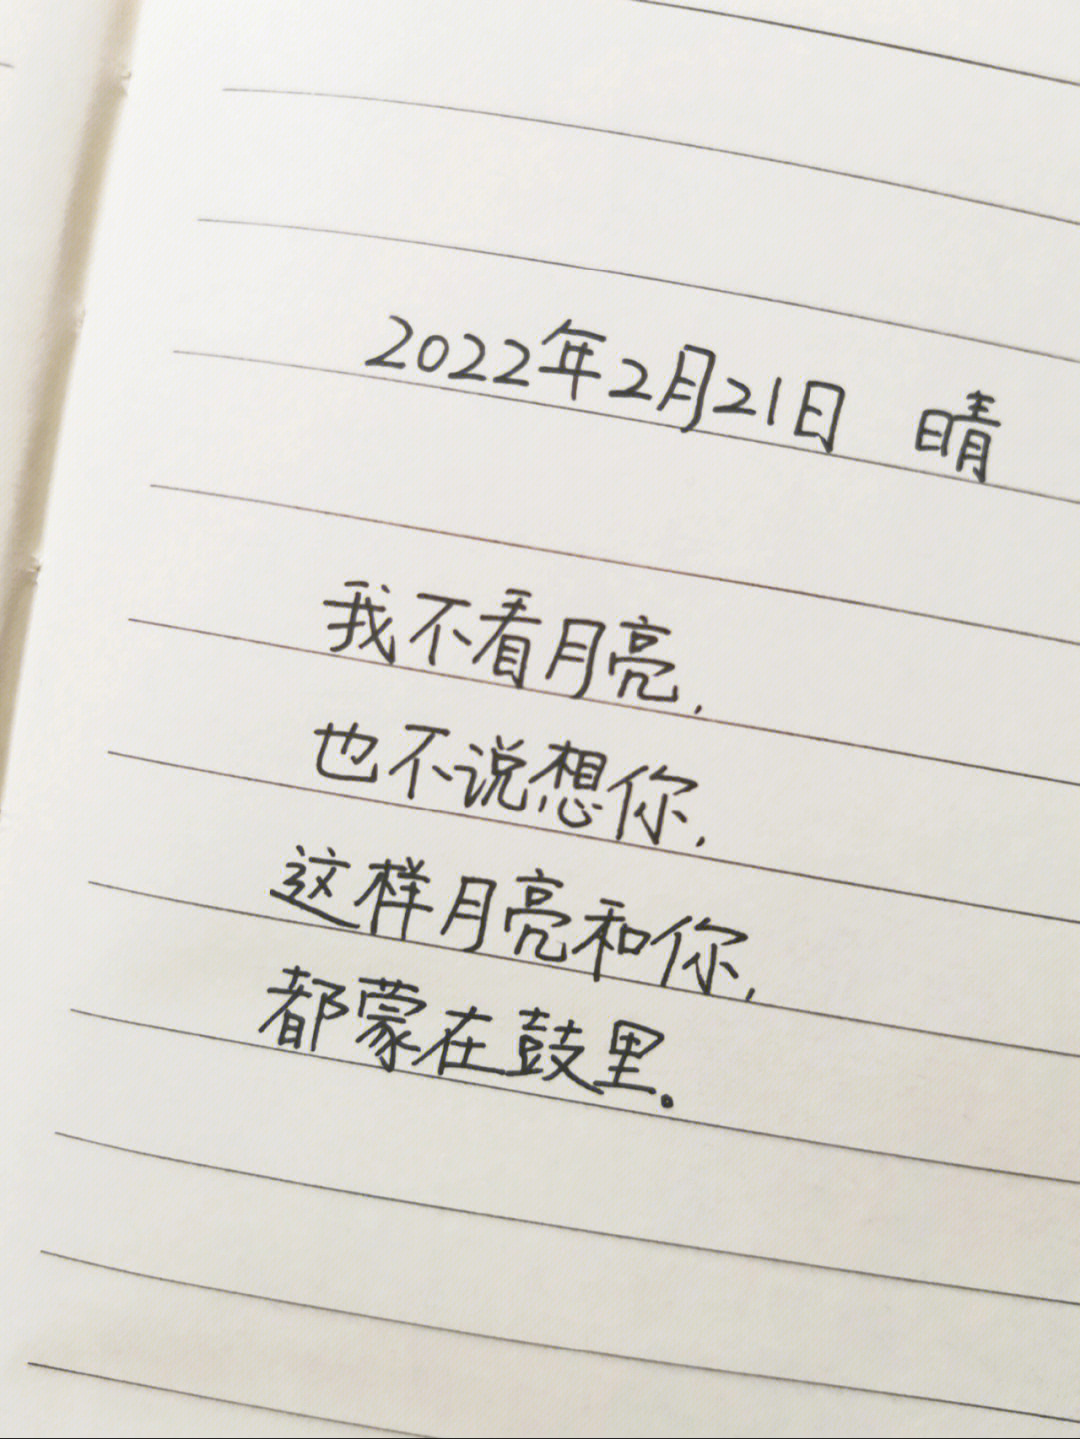 2022年2月21日 晴
我不看月亮,
也不说想你,
这样月亮和你,
都蒙在鼓里。